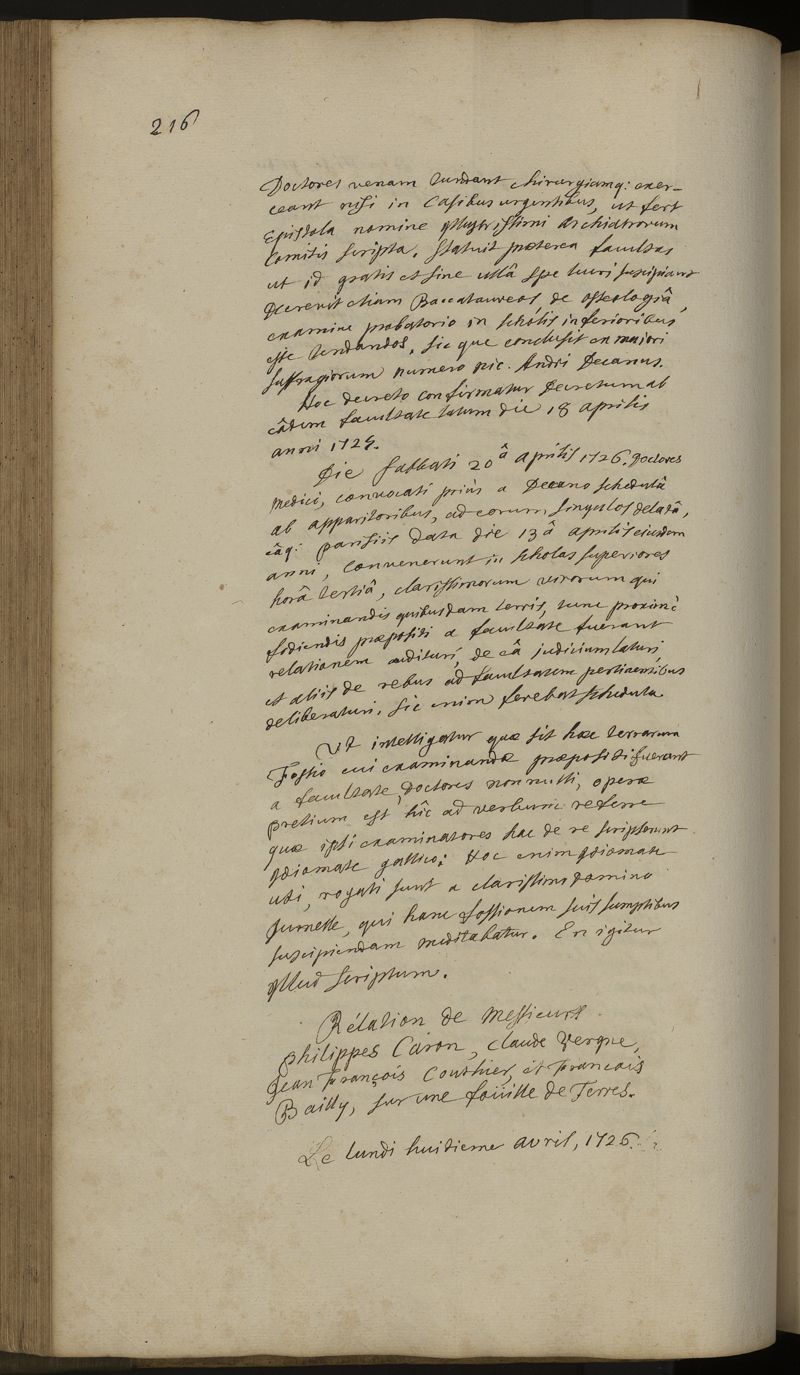 216
Doctores venam tundant chirurgiamq: exer-
ceant nisi in Casibus urgentibus, ut fert
Epistola nomine yllustrissimi Archiatrorum
Comitis scripta. statuit præterea facultas
ut id gratis et sine ullâ spe lucri suscipiant
Decrevit etiam Baccalaureos de osteologiâ,
examine probatorio in scholis inferioribus
esse tentandos. sic que conclusit ex majori
suffragiorum numero nic. Andri Decanus.
Hoc decreto confirmatur Decretum ab
eâdem facultate latum die 18 aprilis
anni 1725.
Die sabbati 20â aprilis 1726. Doctores
medici, convocati priùs a Decano schedulâ
ab apparitoribus, ad eorum singulos delatâ,
eâq: parisiis data die 13â aprilis eiusdem
anni, convenerunt in scholas superiores
horâ tertiâ, clarissimorum virorum qui
examinandis quibusdam terris, tunc proximè
fodiendis præpositi a facultate fuerant
relationem audituri, de eâ judicium laturi,
et aliis de rebus ad facultatem pertinentibus
deliberaturi. sic enim ferebat schedula.
Ut intelligatur quæ sit hæc terrarum
Fossio cui examinandæ præpositi fuerant
a facultate, Doctores nonnulli, operæ
pretium est hîc ad verbum referre
quæ ipsi examinatores hac de re scripserunt
ydiomate gallico: Hoc enim ydiomate
uti, rogati sunt a clarissimo domino
Jumelle, qui hanc fossionem suis sumptibus
suscipiendam meditabatur. En igitur
yllud scriptum.
Rélation de Messieurs
philippes Caron, claude Vergne,
Jean François Couthier, et Francois
Bailly, sur une foüille de Terres.
Le lundi huitieme avril, 1726.